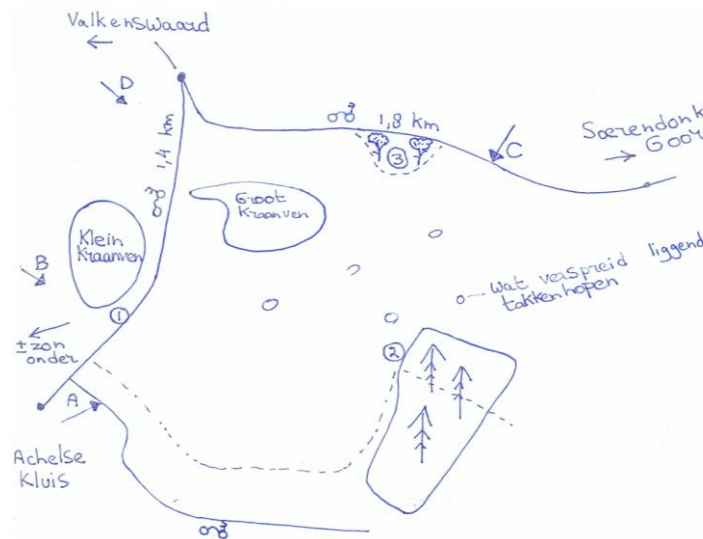 Valkenswaard
D
1,4 km
1,8 km
3
C
Soerendonk
Goor
Groot
Kraanven
Klein
Kraanven
B
wat verspreid liggende
takkenhopen
1
± zon
onder
2
A
Achelse
Kluis